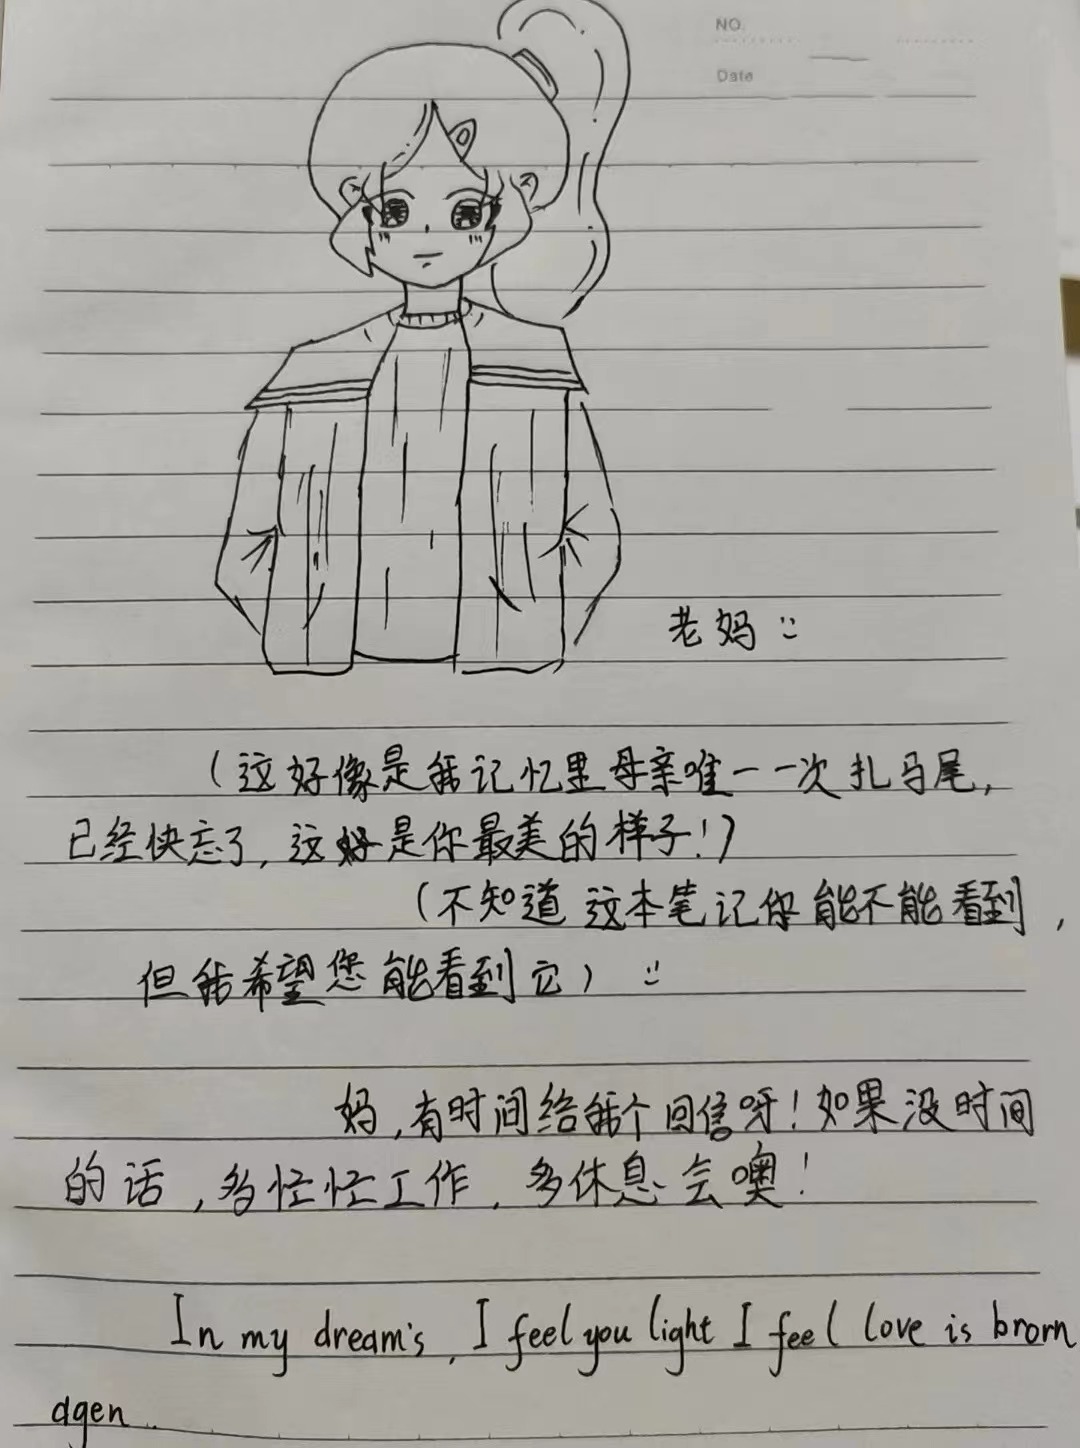 NO.
Date
老妈
(这好像是我记忆里母亲唯一一次扎马尾,
已经快忘了,这好是你最美的样子!)
(不知道这本笔记你能不能看到,
但我希望您能看到它)
妈,有时间给我个回信呀!如果没时间
的话,多怪怪工作,多休息会噢!
In my dream's, I feel you light I feel love is brorn
agen..